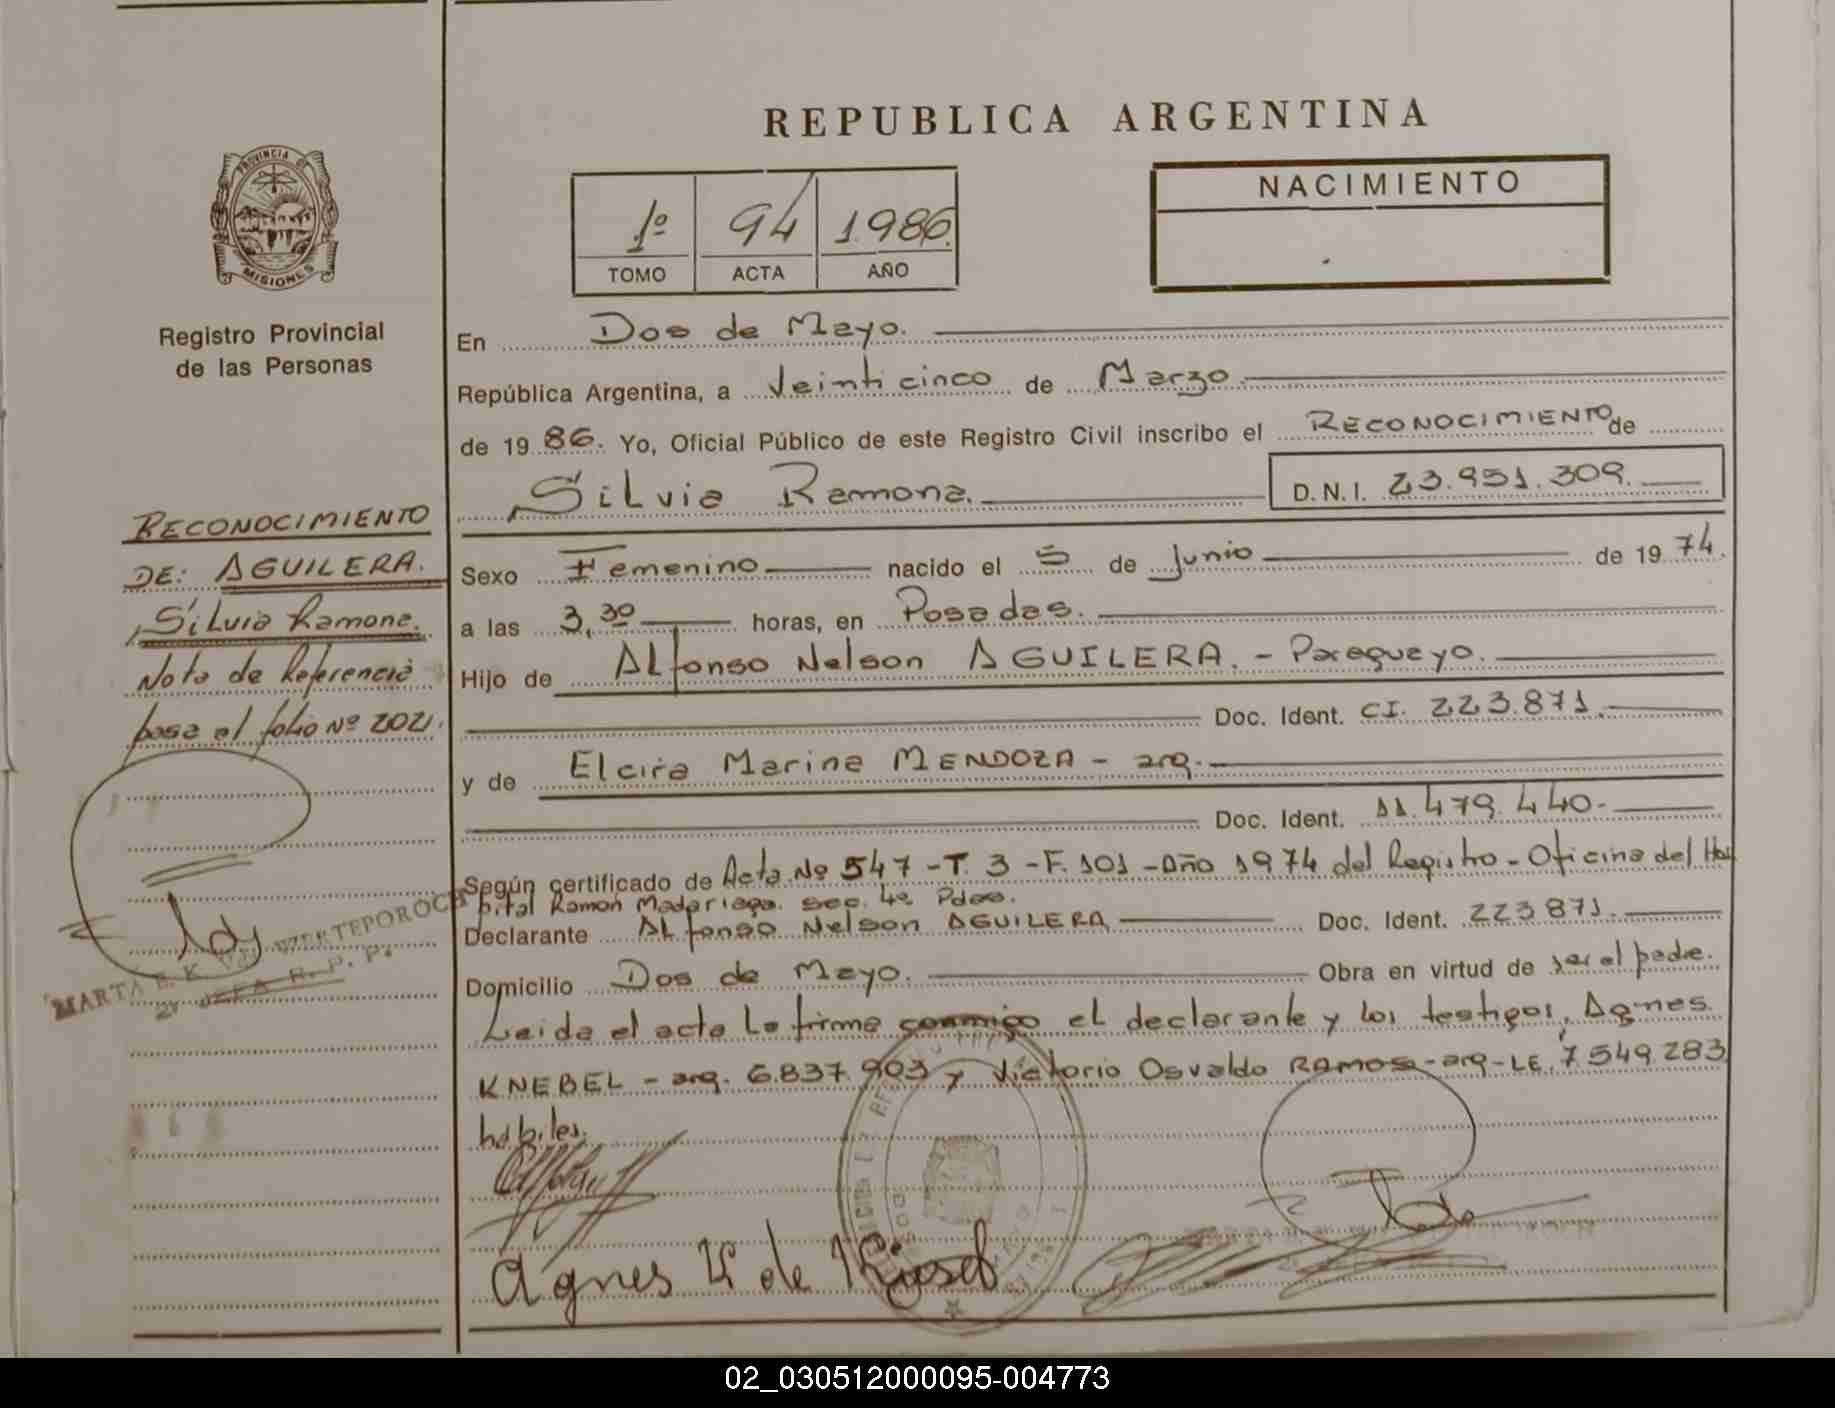 REPUBLICA ARGENTINA
PROVINCIA DE
MISIONES
Registro Provincial
de las Personas
1º 94 1986
TOMO ACTA AÑO
NACIMIENTO
En Dos de Mayo.
República Argentina, a Veinticinco de Marzo
de 19 86. Yo, Oficial Público de este Registro Civil inscribo el RECONOCIMIENTO de
Silvia Ramona. D.N.I. 23.951.309.
Sexo Femenino nacido el 5 de Junio de 19 74.
a las 3,30 horas, en Posadas.
Hijo de Alfonso Nelson AGUILERA. - Paraguayo.
Doc. Ident. CI. 223.871.
y de Elcira Marina MENDOZA - arg.
Doc. Ident. 11.479.440.
Según certificado de Acta Nº 547 - T. 3 - F. 101 - Año 1974 del Registro - Oficina del Hos
pital Ramon Madariaga. Sec. 4ª Pdas.
Declarante Alfonso Nelson AGUILERA Doc. Ident. 223871.
Domicilio Dos de Mayo. Obra en virtud de ser el padre.
Leida el acta la firma conmigo el declarante y los testigos, Agnes
KNEBEL - arg. 6.837.903 y Victorio Osvaldo RAMOS - arg - LE. 7.549.283
habiles.
Agnes K de
RECONOCIMIENTO
DE: AGUILERA.
Silvia Ramona.
Nota de Referencia
pasa al folio Nº 202.
MARTA E. K.
JEFA R. P. P.
02_030512000095-004773